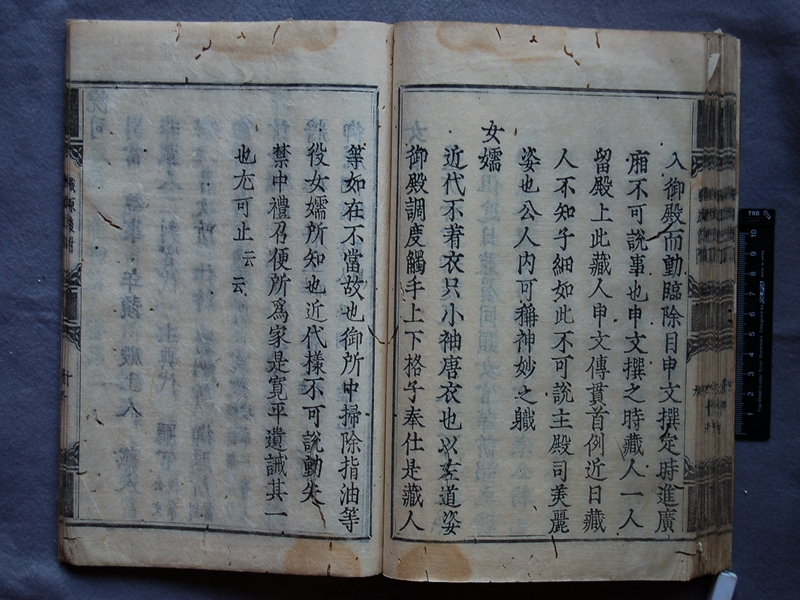 入御殿而動臨除目申文撰定時進廣
廂不可說事也申文撰之時藏人一人
留殿上此藏人申文傳貫首例近日藏
人不知子細如此不可說主殿司美麗
姿也公人內可稱神妙之職
女嬬
近代不着衣只小袖唐衣也以左道姿
御殿調度觸手上下格子奉仕是藏人
等如在不當故也御所中掃除指油等
役女嬬所知也近代樣不可說動失
禁中禮召便所爲家是寬平遺誡其一
也尤可止云云